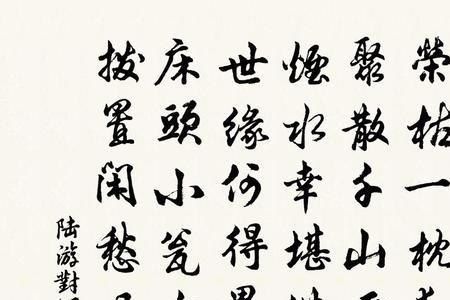 榮枯一枕
聚散千山
煙水幸堪
世緣何得
床頭小瓮
撥置閑愁
陸游對